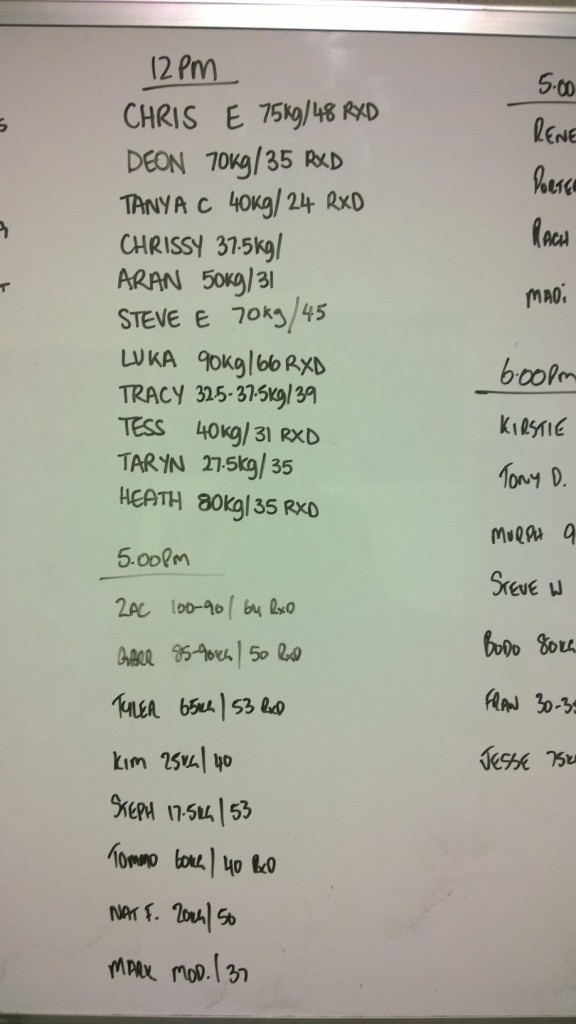 12PM
CHRIS E 75kg/48 RXD
DEON 70kg/35 RXD
TANYA C 40kg/24 RXD
CHRISSY 37.5kg/
ARAN 50kg/31
STEVE E 70kg/45
LUKA 90kg/66 RXD
TRACY 32.5-37.5kg/39
TESS 40kg/31 RXD
TARYN 27.5kg/35
HEATH 80kg/35 RXD
5.00pm
ZAC 100-90/64 RXD
85-90KG/50 RXD
TYLER 65KG/53 RXD
KIM 25KG/40
STEPH 17.5KG/53
TOMMO 60KG/40 RXD
NAT F. 20KG/50
MARK MOD./37
5.00
RENE
PORTE
RACH
MADI
6.00pm
KIRSTIE
TONY D.
MURPH 9
STEVE W
BODO 80KG
FRAN 30-35
JESSE 75K